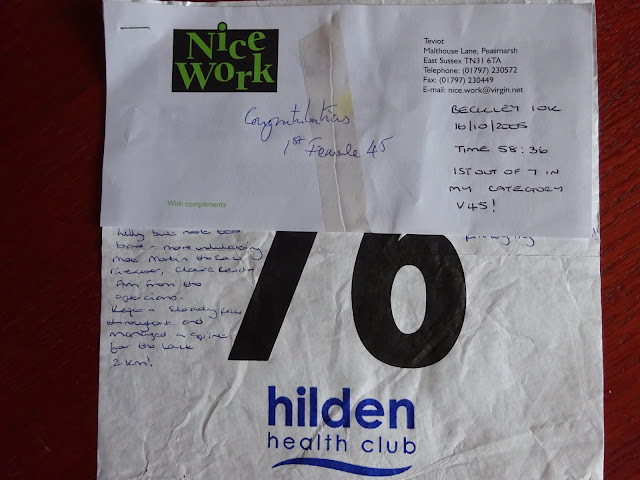 Nice
Work
Teviot
Malthouse Lane, Peasmarsh
East Sussex TN31 6TA
Telephone: (01797) 230572
Fax: (01797) 230449
E-mail: nice.work@virgin.net
Congratulations
1st Female 45
BECKLEY 10K
16/10/2005
TIME 58:36
1ST OUT OF 7 IN
MY CATEGORY
V45!
With compliments
hilly but not too
bad - more undulating
Met Martin the
Director, Claire
Ann from the
opticians.
Kept a steady
throughout and
managed a sprint
for the last
2 km!
76
hilden
health club